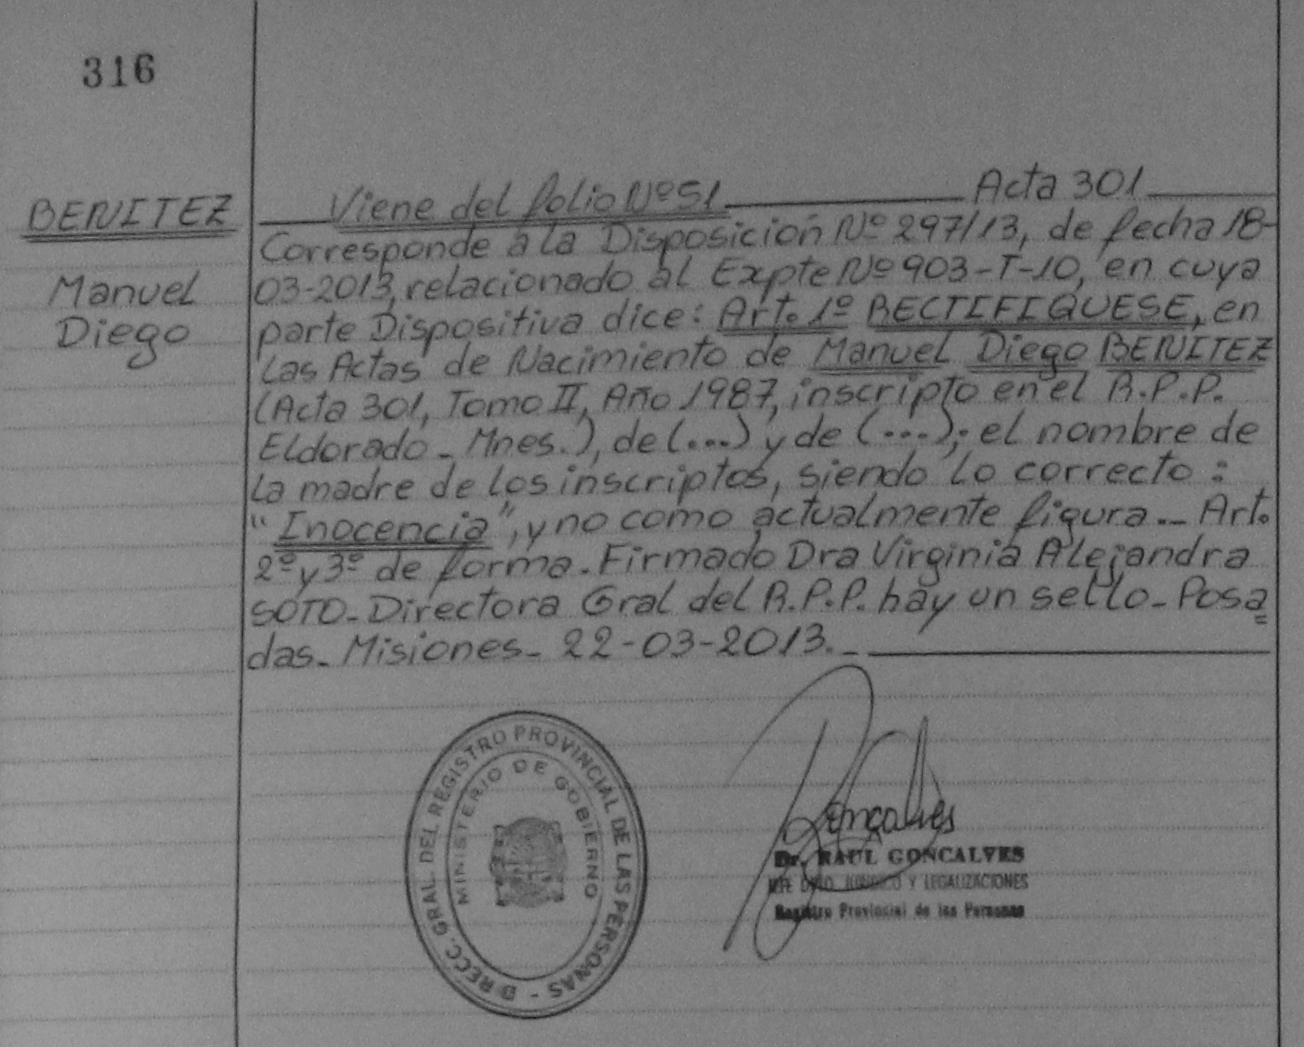 316
BENITEZ
Manuel
Diego
Viene del folio Nº 51 Acta 301
Corresponde a la Disposición Nº 297/13, de fecha 18-
03-2013, relacionado al Expte Nº 903-T-10, en cuya
parte Dispositiva dice: Art. 1º RECTIFIQUESE, en
las Actas de Nacimiento de Manuel Diego BENITEZ
(Acta 301, Tomo II, Año 1987, inscripto en el R.P.P.
Eldorado - Mnes.), de (...) y de (...); el nombre de
la madre de los inscriptos, siendo lo correcto:
"Inocencia", y no como actualmente figura._ Art.
2º y 3º de forma. Firmado Dra Virginia Alejandra
SOTO_ Directora Gral del R.P.P. hay un sello_ Posa
das_ Misiones_ 22-03-2013._
DIRECC. GRAL. DEL REGISTRO PROVINCIAL DE LAS PERSONAS -
MINISTERIO DE GOBIERNO
Gonçalves
Dr. RAUL GONCALVES
JEFE DPTO. JURIDICO Y LEGALIZACIONES
Registro Provincial de las Personas